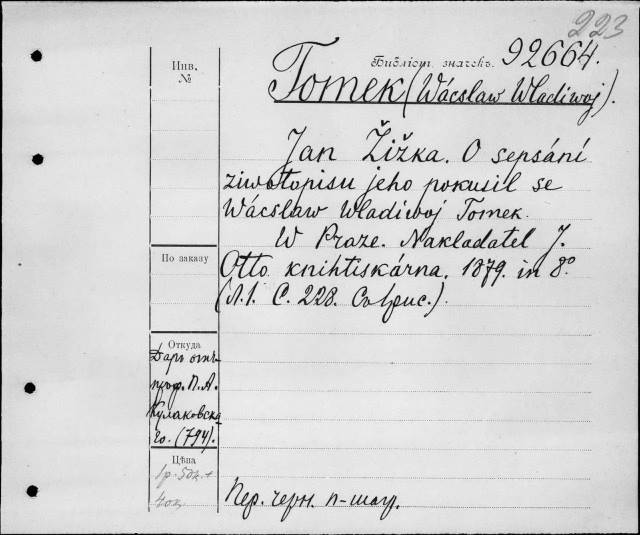 223
Библіот. значекъ. 92664.
Инв.
№
Tomek (Wácslaw Wladiwoj).
Jan Žižka. O sepsání
ziwotopisu jeho pokusil se
Wácslaw Wladiwoj Tomek.
W Praze. Nakladatel J.
Otto knihtiskárna. 1879. in 8º
(Л.1. С. 228.
По заказу
Откуда
Даръ отъ
проф. П. А.
Кулаковска
го. (794).
Цѣна
1р. 50к. +
40к
Пер. черн. п-шагр.